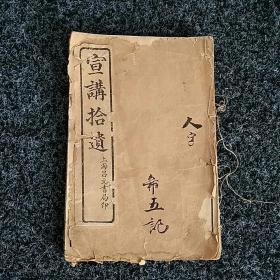 宣講拾遺
上海昌文書局印
人字
五記